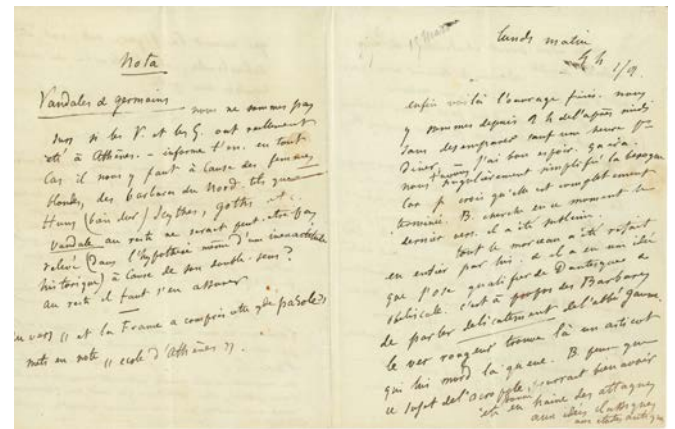 Nota
Vandales & germains nous ne sommes pas
sûrs si les V. et les G. ont réellement
été à Athènes. - informe t'en. en tout
cas il nous y faut à cause des femmes
blondes, des barbares du Nord. tels que
Huns (bien dur) Scythes, goths etc.
Vandale au reste ne serait peut-être pas
relevé (dans l'hypothèse même d'une inexactitude
historique) à cause de son double-sens?
au reste il faut s'en assurer
vers « et la France a compris cette parole »
mets en note « école d'Athènes ».
lundi matin
4 h 1/2.
enfin voilà l'ouvrage fini. nous
y sommes depuis 2 h de l'après midi
sans désemparer sauf une heure pr
diner. J'ai bon espoir.
nous singulièrement simplifié la besogne
car je crois qu'elle est complètement
terminée. B. cherche en ce moment le
dernier vers. il a été sublime.
tout le morceau a été refait
en entier par lui. & il a eu une idée
que j'ose qualifier de Dantesque &
obéliscale. c'est à propos des Barbares
de parler délicatement de l'abbé gaume.
le ver rongeur trouve là un asticot
qui lui mord la queue. B. pense que
ce sujet de l'acropole, pourrait bien avoir
été en haine des attaques
aux idées classiques